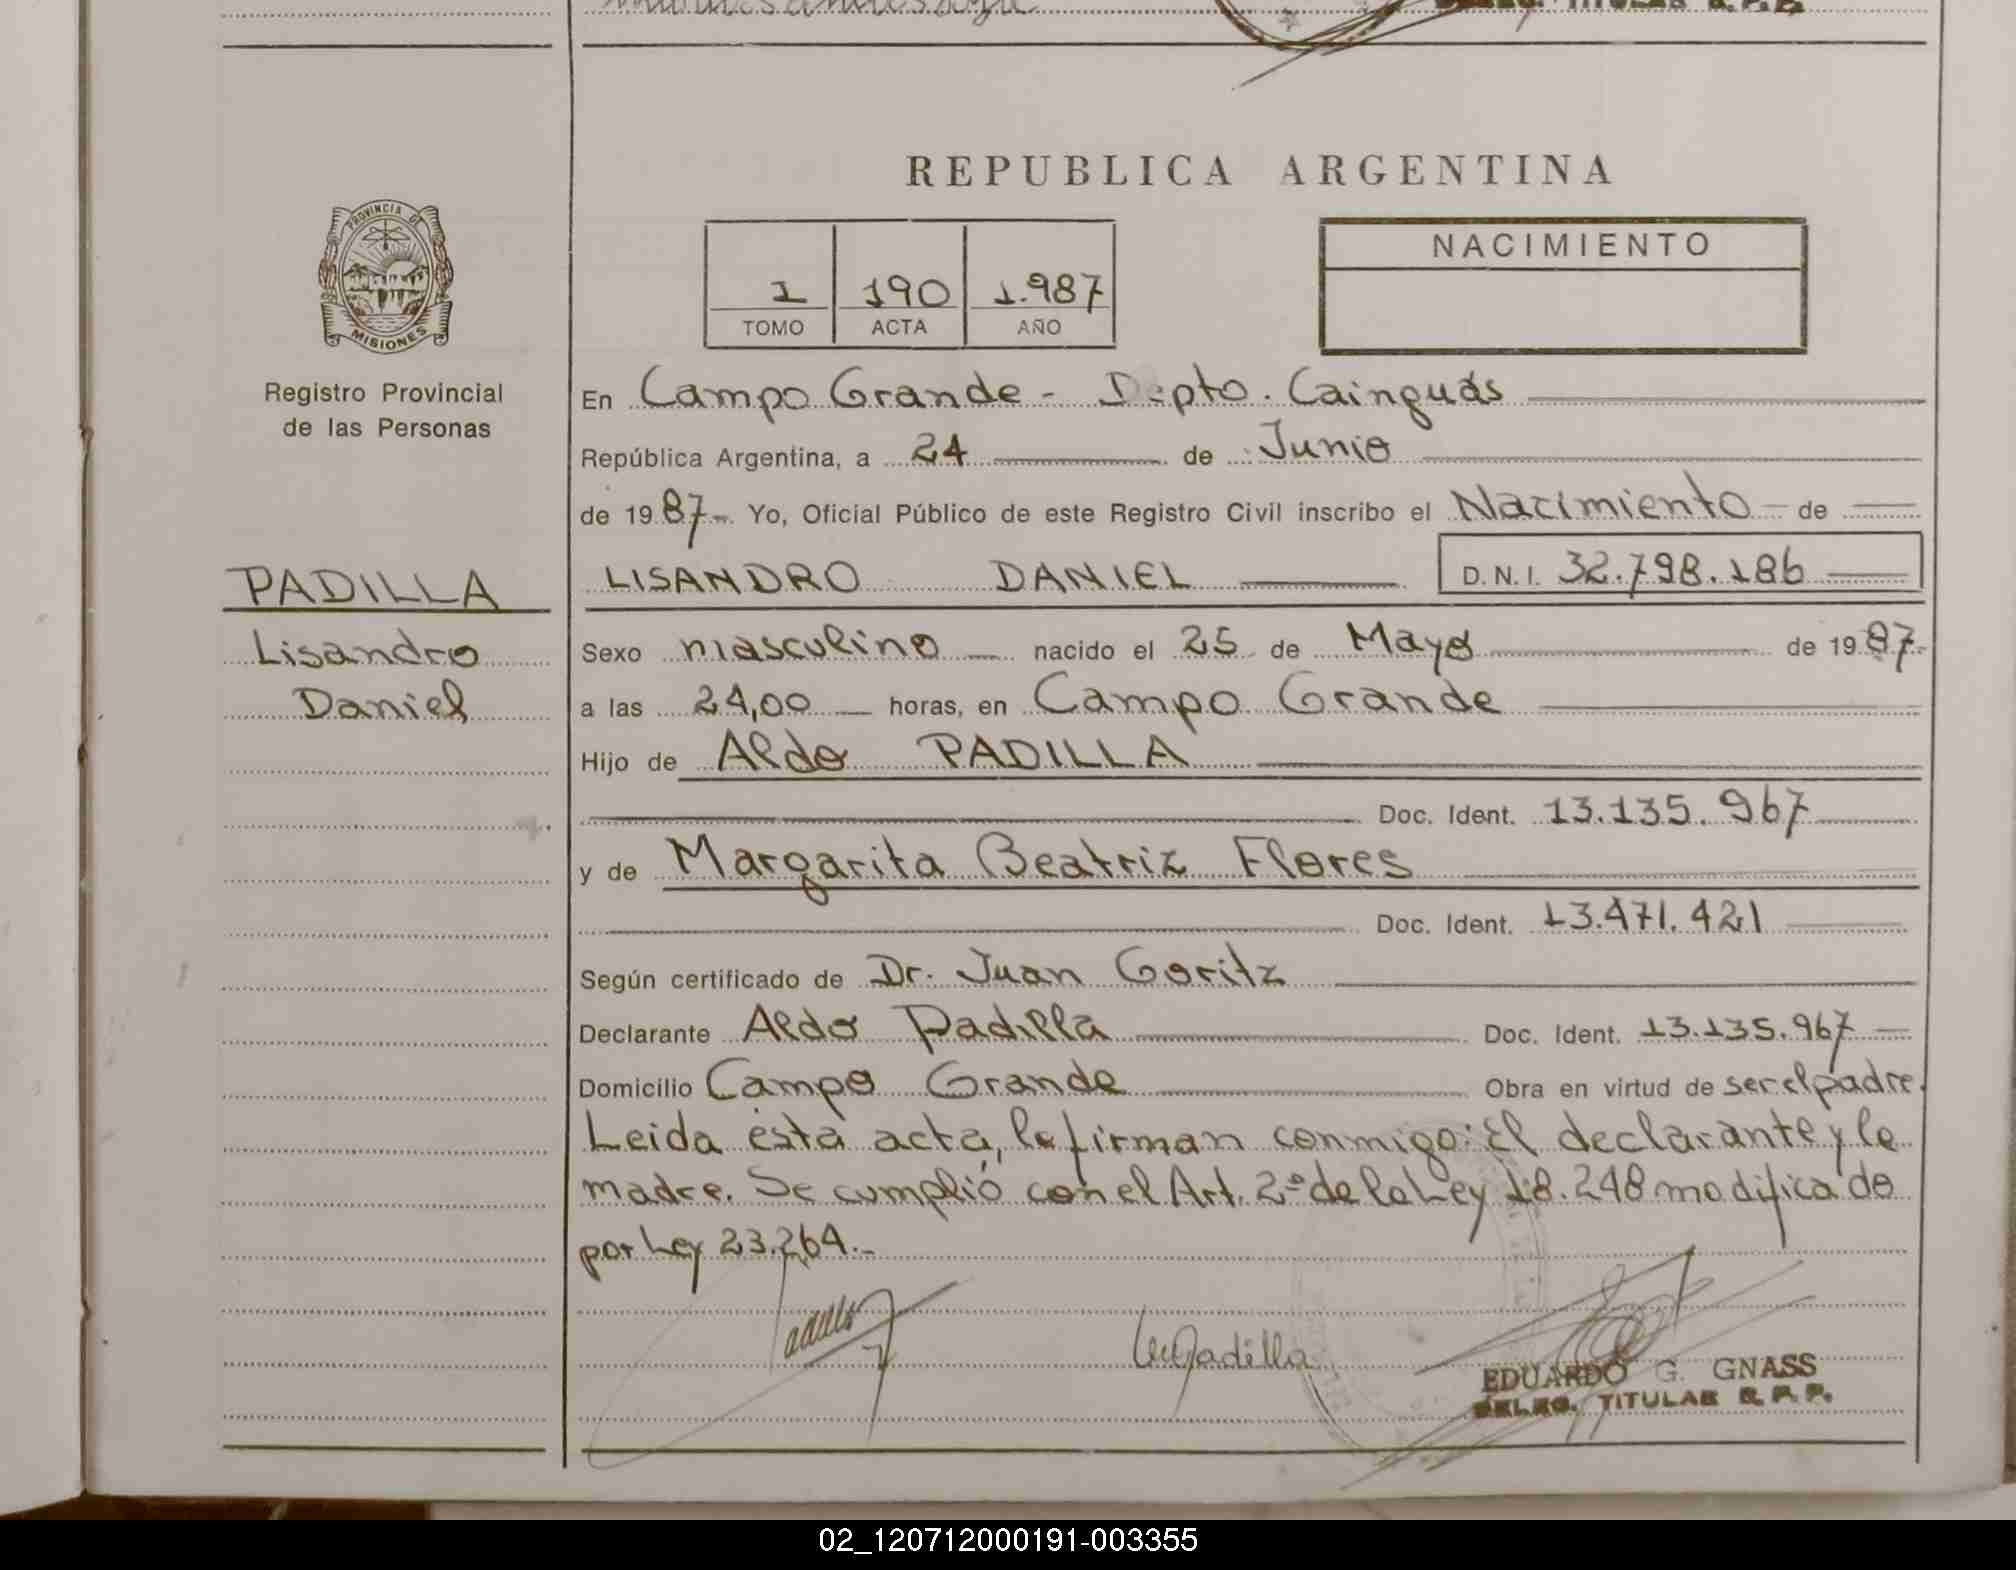 REPUBLICA ARGENTINA
PROVINCIA DE
MISIONES
Registro Provincial
de las Personas
PADILLA
Lisandro
Daniel
1 190 1.987
TOMO ACTA AÑO
NACIMIENTO
En Campo Grande - Depto. Cainguás
República Argentina, a 24 de Junio
de 1987 Yo, Oficial Público de este Registro Civil inscribo el Nacimiento de
LISANDRO DANIEL D.N.I. 32.798.186
Sexo masculino nacido el 25 de Mayo de 1987
a las 24,00 horas, en Campo Grande
Hijo de Aldo PADILLA
Doc. Ident. 13.135.967
y de Margarita Beatriz Flores
Doc. Ident. 13.471.421
Según certificado de Dr. Juan Goritz
Declarante Aldo Padilla Doc. Ident. 13.135.967
Domicilio Campo Grande Obra en virtud de ser el padre.
Leida esta acta, la firman conmigo: el declarante y la
madre. Se cumplió con el Art. 2º de la Ley 18.248 modificado
por Ley 23.264.-
EDUARDO G. GNASS
DELEG. TITULAR R.P.P.
02_120712000191-003355